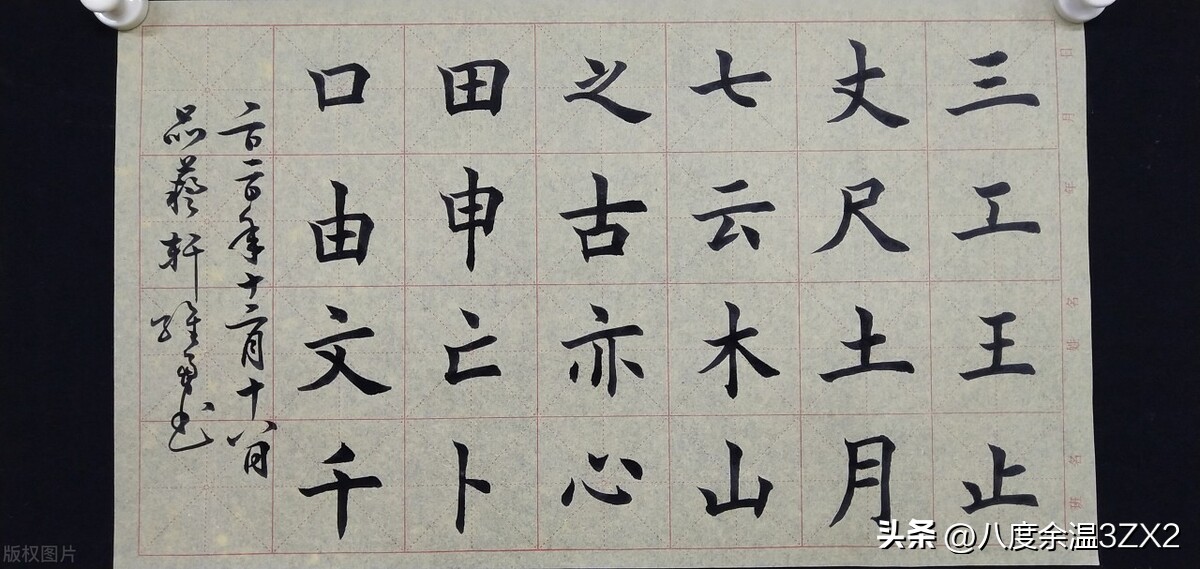 三工王止
丈尺土月
七云木山
之古亦心
田申亡卜
口由文千
二〇二〇年十二月十八日
品藝軒
头条 @八度余温3ZX2
版权图片